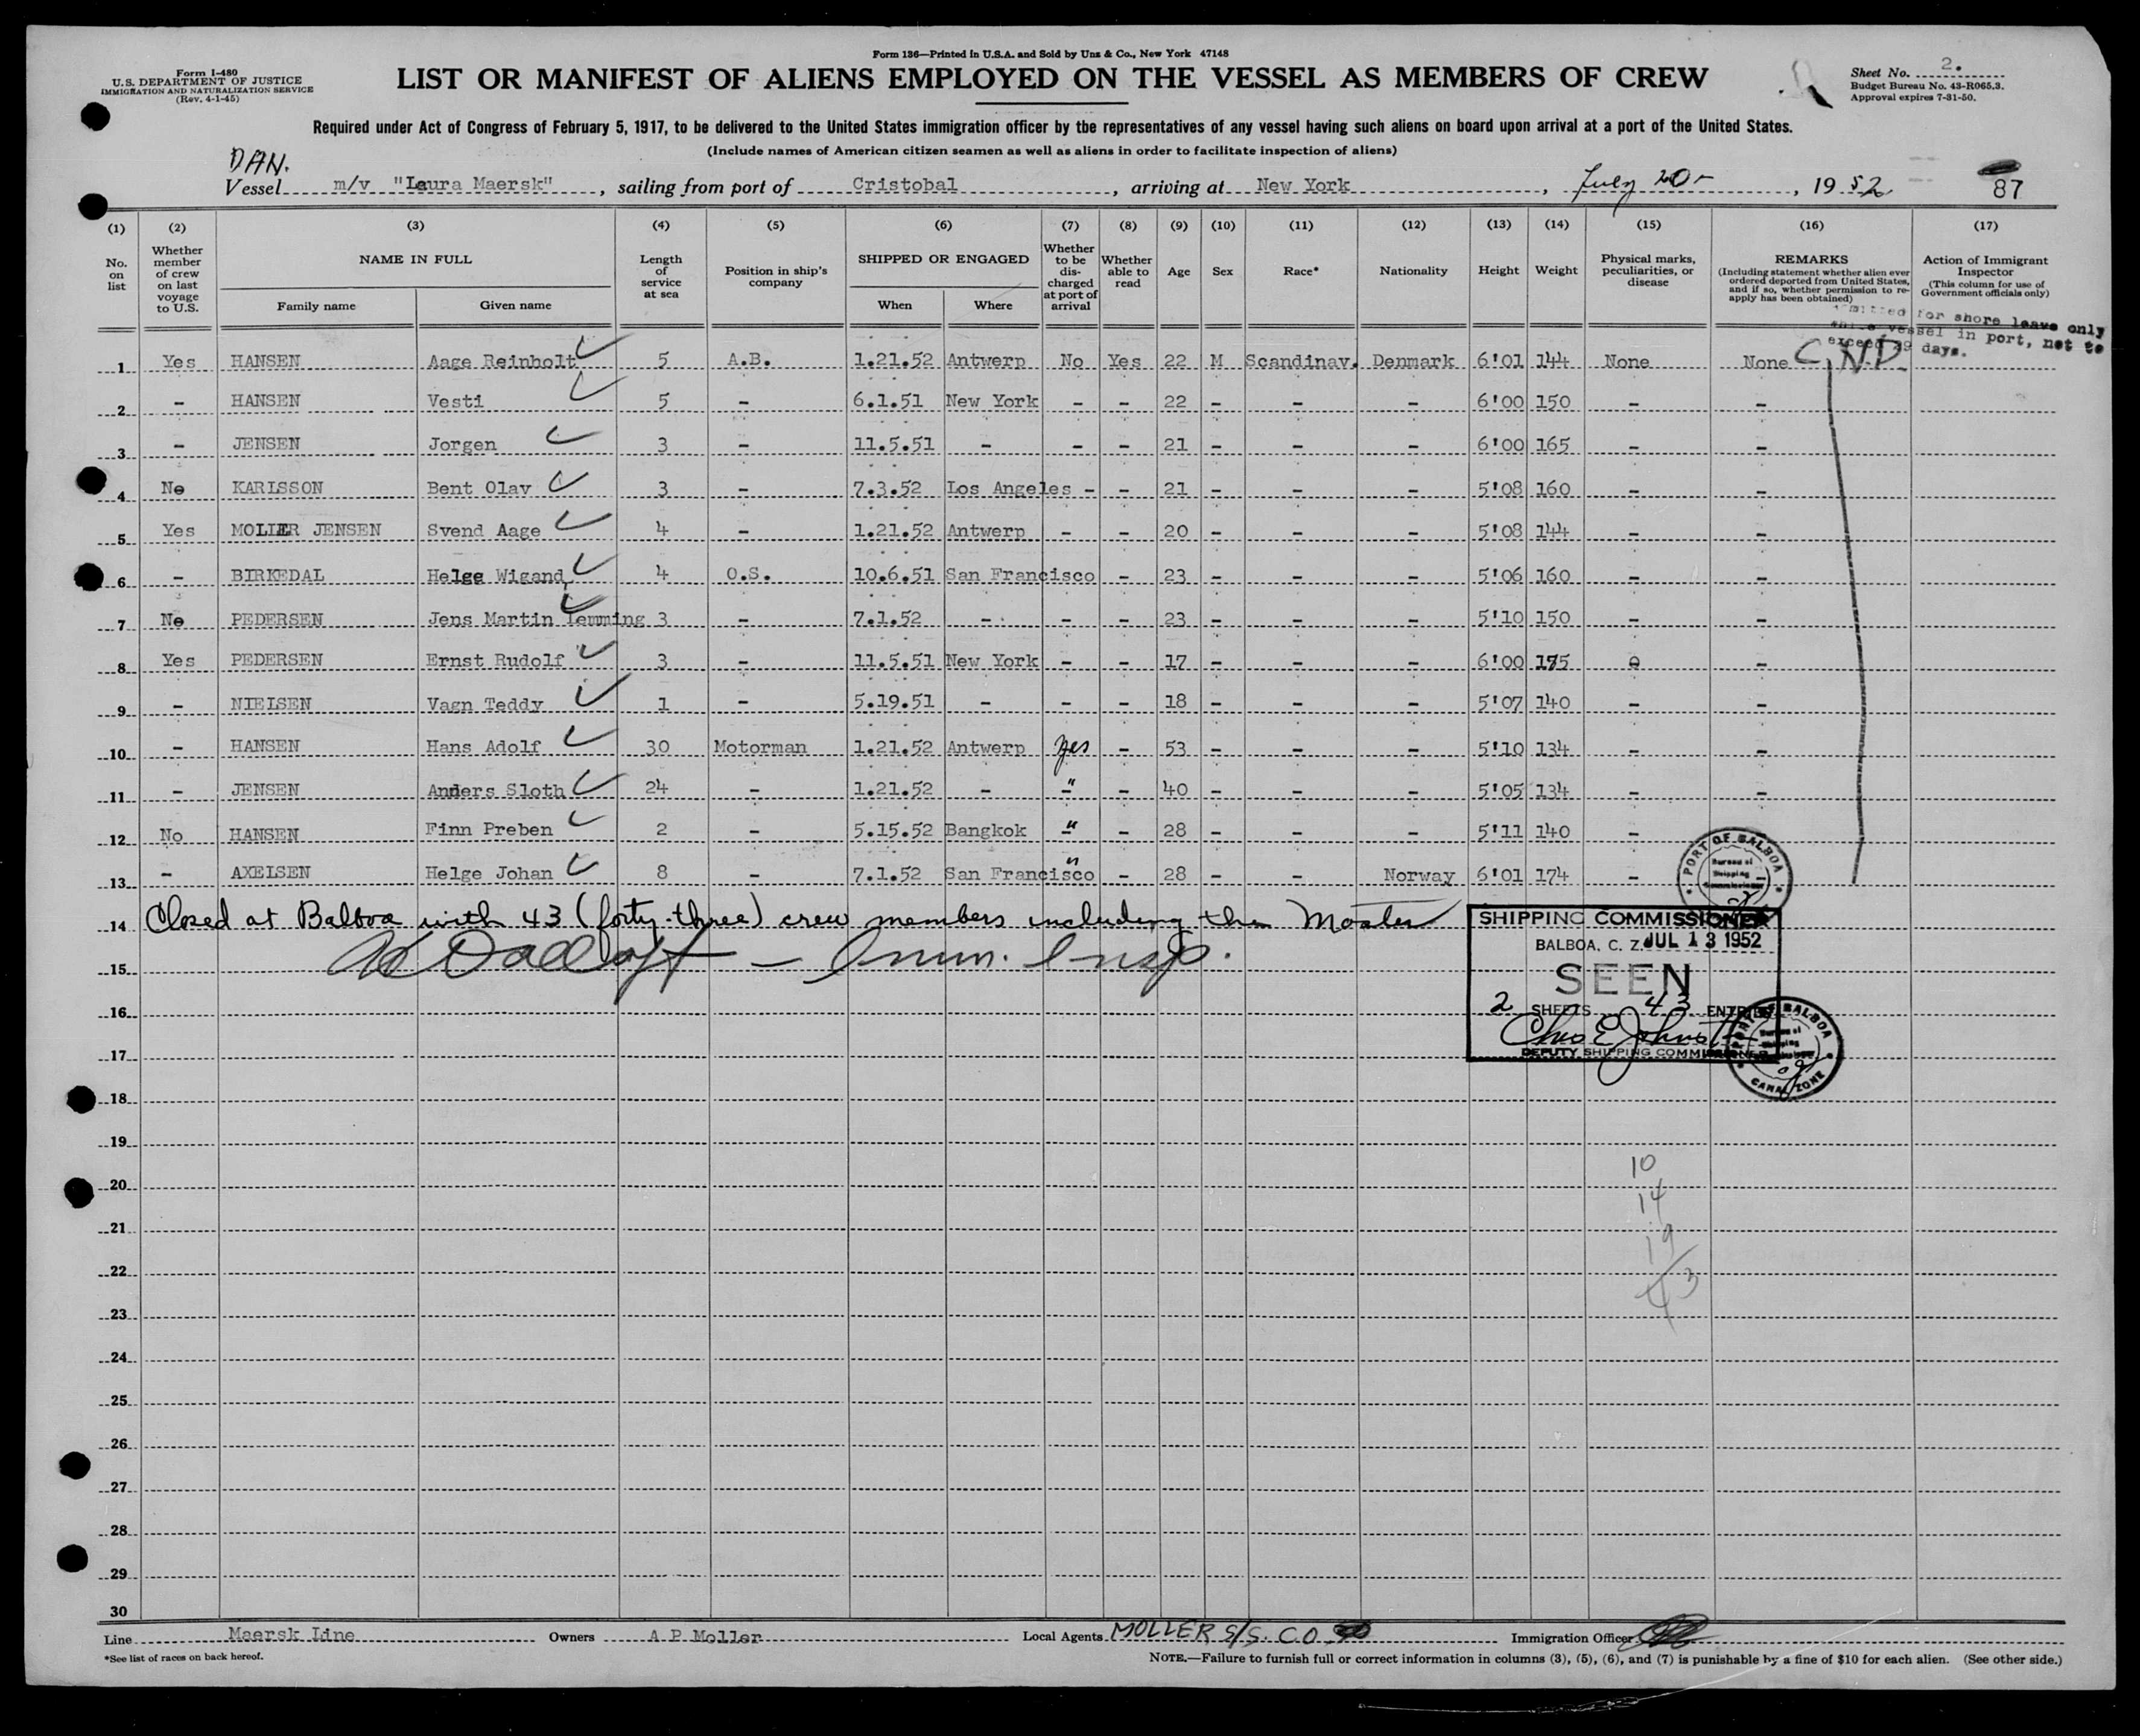 Form 136—Printed in U.S.A. and Sold by Unz & Co., New York 47148
Form I-480
U.S. DEPARTMENT OF JUSTICE
IMMIGRATION AND NATURALIZATION SERVICE
(Rev. 4-1-45)
LIST OR MANIFEST OF ALIENS EMPLOYED ON THE VESSEL AS MEMBERS OF CREW
Sheet No. 2.
Budget Bureau No. 43-R065.3.
Approval expires 7-31-50.
Required under Act of Congress of February 5, 1917, to be delivered to the United States immigration officer by the representatives of any vessel having such aliens on board upon arrival at a port of the United States.
(Include names of American citizen seamen as well as aliens in order to facilitate inspection of aliens)
DAN.
Vessel m/v "Laura Maersk", sailing from port of Cristobal, arriving at New York, July 20-, 1952
87
(1) (2) (3) (4) (5) (6) (7) (8) (9) (10) (11) (12) (13) (14) (15) (16) (17)
No. on list
Whether member of crew on last voyage to U.S.
NAME IN FULL
Family name
Given name
Length of service at sea
Position in ship's company
SHIPPED OR ENGAGED
When
Where
Whether to be dis-charged at port of arrival
Whether able to read
Age
Sex
Race*
Nationality
Height
Weight
Physical marks, peculiarities, or disease
REMARKS
(Including statement whether alien ever ordered deported from United States, and if so, whether permission to re-apply has been obtained)
Action of Immigrant Inspector
(This column for use of Government officials only)
for shore leave only
vessel in port, not to
exceed 29 days.
1 Yes HANSEN Aage Reinholt 5 A.B. 1.21.52 Antwerp No Yes 22 M Scandinav. Denmark 6'01 144 None None
2 - HANSEN Vesti 5 - 6.1.51 New York - - 22 - - - 6'00 150 - -
3 - JENSEN Jorgen 3 - 11.5.51 - - - 21 - - - 6'00 165 - -
4 No KARLSSON Bent Olav 3 - 7.3.52 Los Angeles - - 21 - - - 5'08 160 - -
5 Yes MOLLER JENSEN Svend Aage 4 - 1.21.52 Antwerp - - 20 - - - 5'08 144 - -
6 - BIRKEDAL Helge Wigand 4 O.S. 10.6.51 San Francisco - 23 - - - 5'06 160 - -
7 No PEDERSEN Jens Martin Lemming 3 - 7.1.52 - - - 23 - - - 5'10 150 - -
8 Yes PEDERSEN Ernst Rudolf 3 - 11.5.51 New York - - 17 - - - 6'00 175 -
9 - NIELSEN Vagn Teddy 1 - 5.19.51 - - - 18 - - - 5'07 140 - -
10 - HANSEN Hans Adolf 30 Motorman 1.21.52 Antwerp yes - 53 - - - 5'10 134 - -
11 - JENSEN Anders Sloth 24 - 1.21.52 - " - 40 - - - 5'05 134 - -
12 No HANSEN Finn Preben 2 - 5.15.52 Bangkok " - 28 - - - 5'11 140 -
13 - AXELSEN Helge Johan 8 - 7.1.52 San Francisco " - 28 - - Norway 6'01 174 -
PORT OF BALBOA
Bureau of Shipping
14 Closed at Balboa with 43 (forty-three) crew members including the Master
SHIPPING COMMISSIONER
BALBOA, C. Z. JUL 13 1952
15 Imm. Insp.
SEEN
16
2 SHEETS 43
Chas E Johnston
17
DEPUTY SHIPPING COMMISSIONER
PORT OF BALBOA
CANAL ZONE
18
19
10
20
14
21
19
22
43
23
24
25
26
27
28
29
30
Line Maersk Line Owners A P Moller Local Agents MOLLER S/S. CO Immigration Officer
*See list of races on back hereof.
NOTE.—Failure to furnish full or correct information in columns (3), (5), (6), and (7) is punishable by a fine of $10 for each alien. (See other side.)